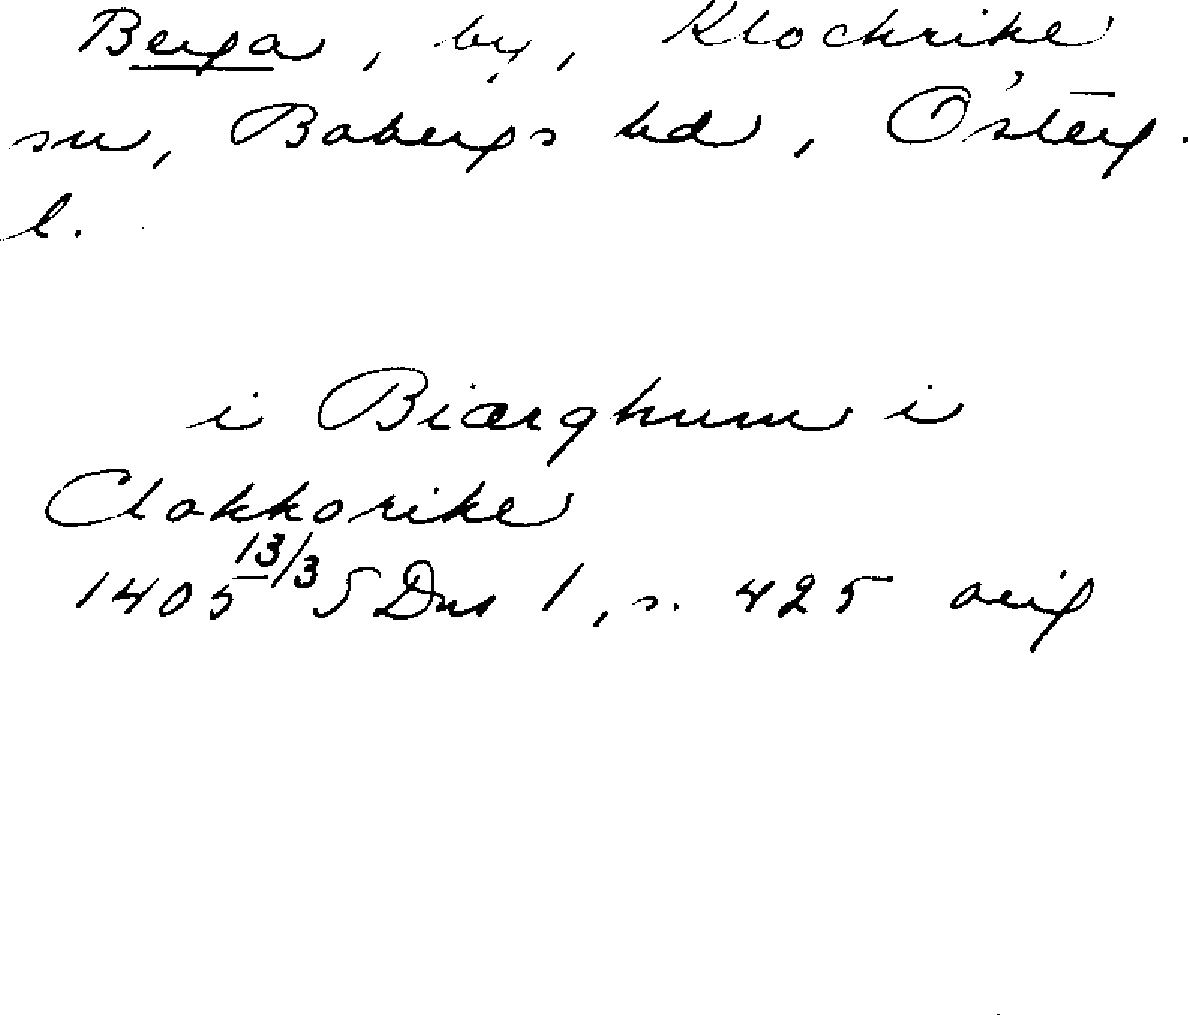 Berga, by, Klockrike
sn, Bobergs hd, Österg.
l.
i Biærghum i
Clokkorike
1405 13/3 SDns 1, s. 425 orig